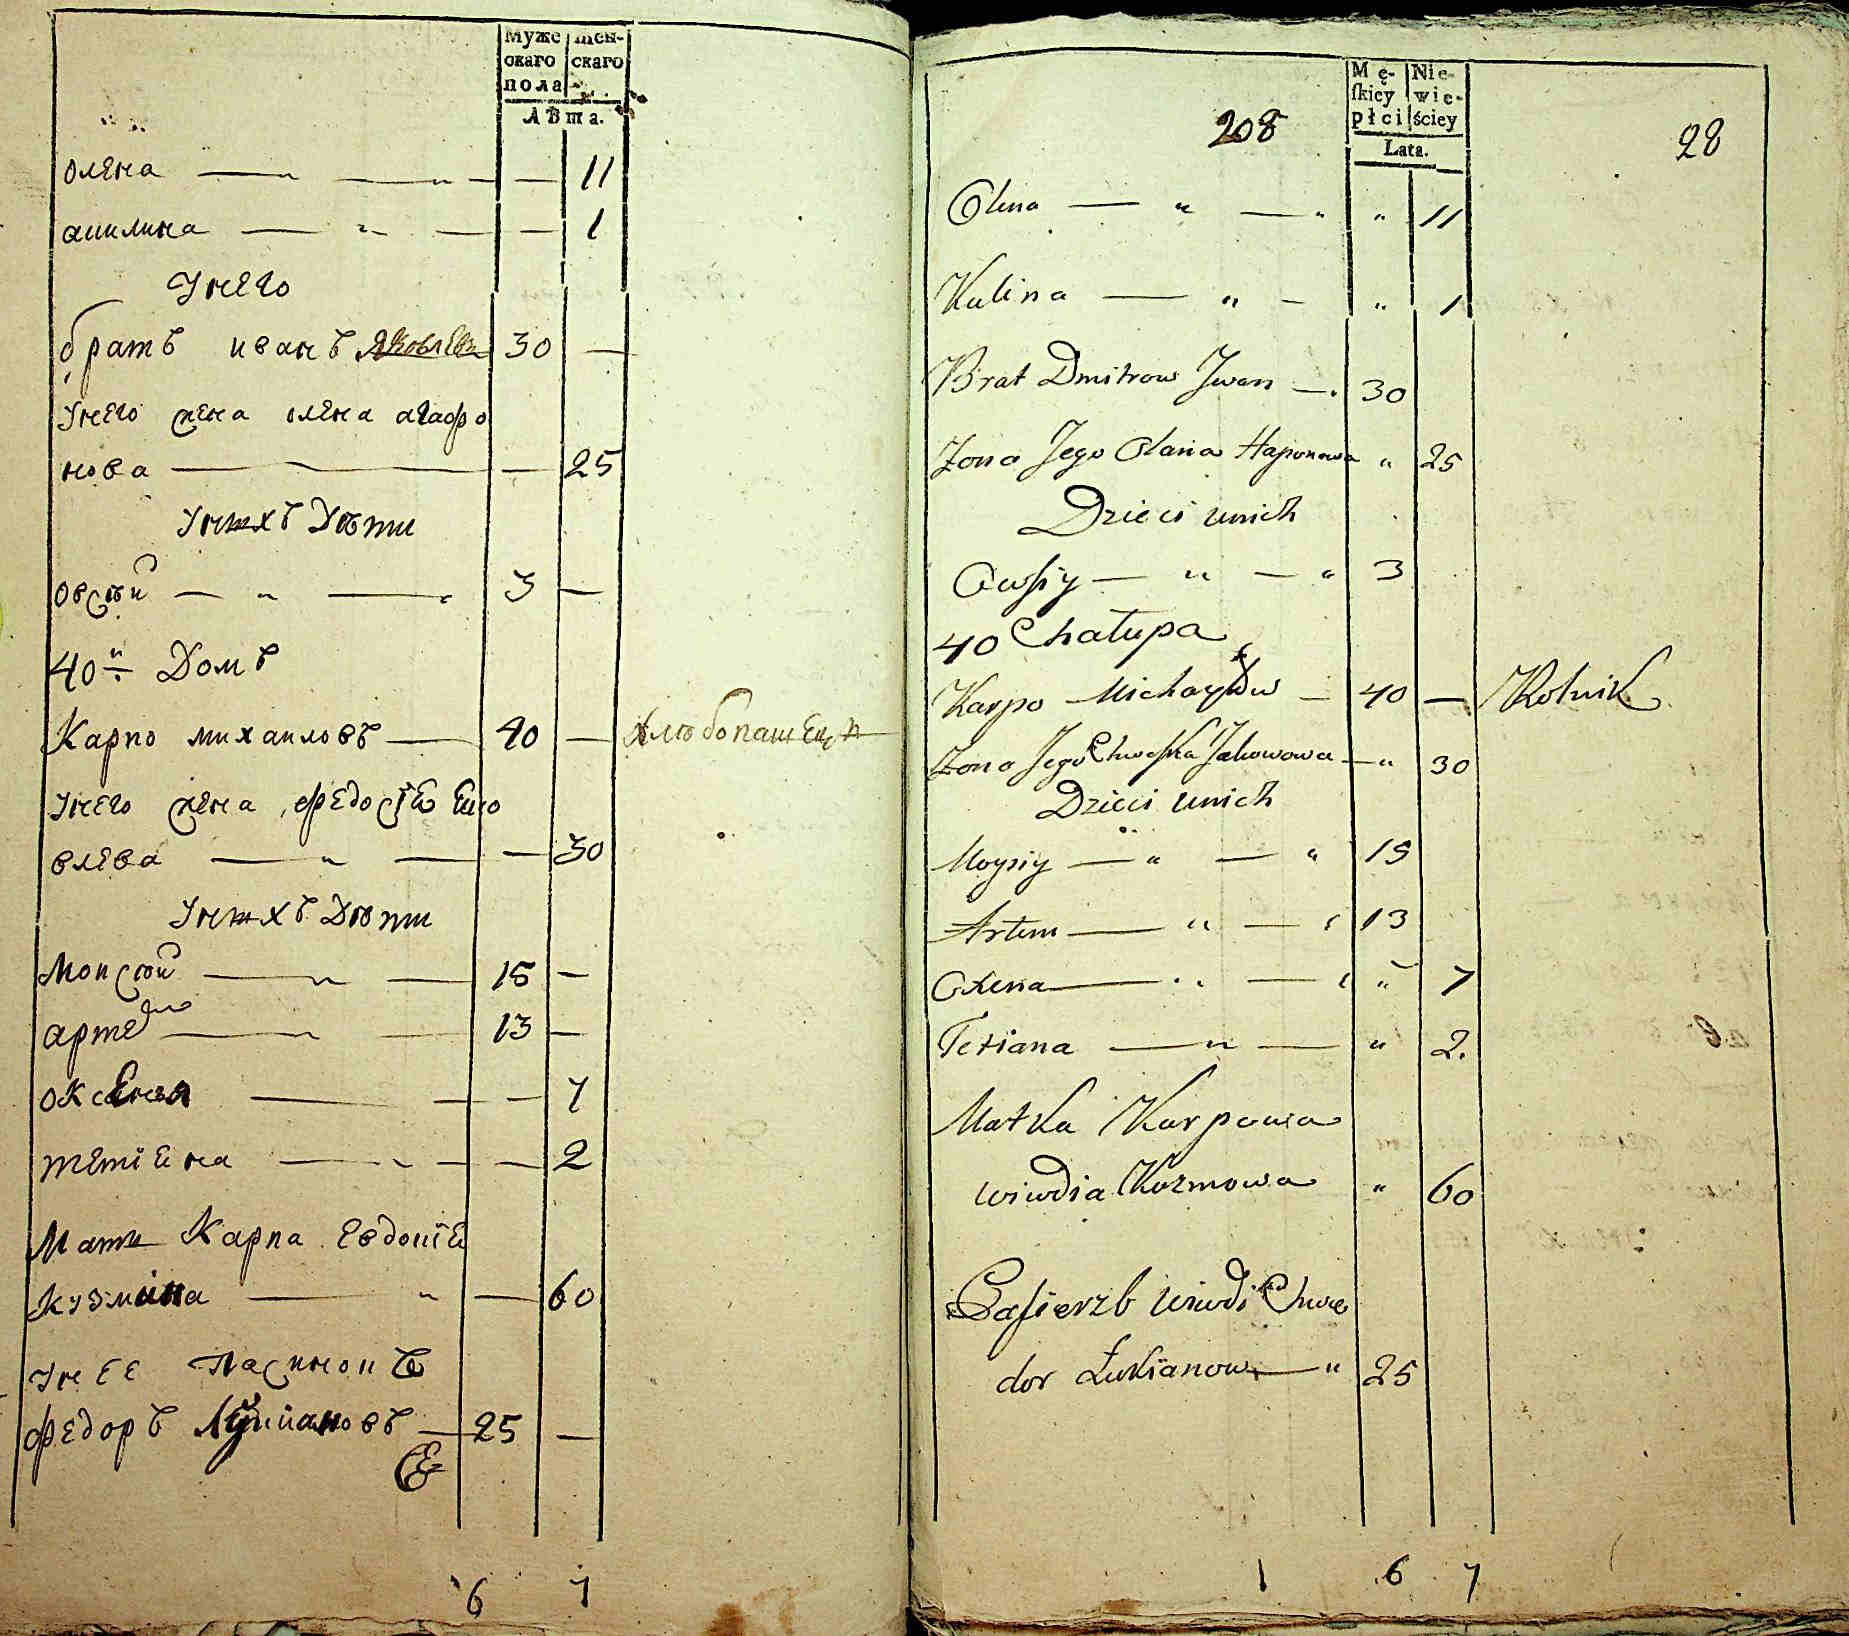 Муже- Жен-
скаго скаго
пола
Лѣта.
олена — „ — „ — — 11
акилина — „ — — 1
Унего
братъ иванъ Яковлевъ 30 —
Унего жена олена агафо
нова — — 25
Унихъ Дѣти
овсѣй — „ — 3 —
40й Домъ
Карпо михаиловъ — 40 — хлѣбопашецъ
Унего жена федосія Яко
влева — „ — — 30
Унихъ Дѣти
Моисѣй — „ — 15 —
артемъ — „ — 13 —
оксения — — — 7
тетіяна — „ — — 2
Мати Карпа Евдокія
кузмина — „ — 60
Унее пасинокъ
федоръ Лукиановъ — 25 —
6 7
Mę- Nie-
ſkiey wie-
płci ściey
Lata.
208
28
Olena — „ — „ „ 11
Kulina — „ — „ 1
Brat Dmitrow Jwan — 30
Zona Jego Olana Haponowa „ 25
Dzieci unich
Owsiy — „ — „ 3
40 Chałupa
Karpo Michayłow — 40 — Rolnik
Zona Jego Chweska Jakowowa — „ 30
Dzieci unich
Moysiy — „ — „ 15
Artem — „ — „ 13
Oxena — „ — „ „ 7
Tetiana — „ — „ 2.
Matka Karpowa
Wiwdia Kozmowa „ 60
Pasierzb Wiwdi Chwe
dor Łukianow — „ 25
1 6 7